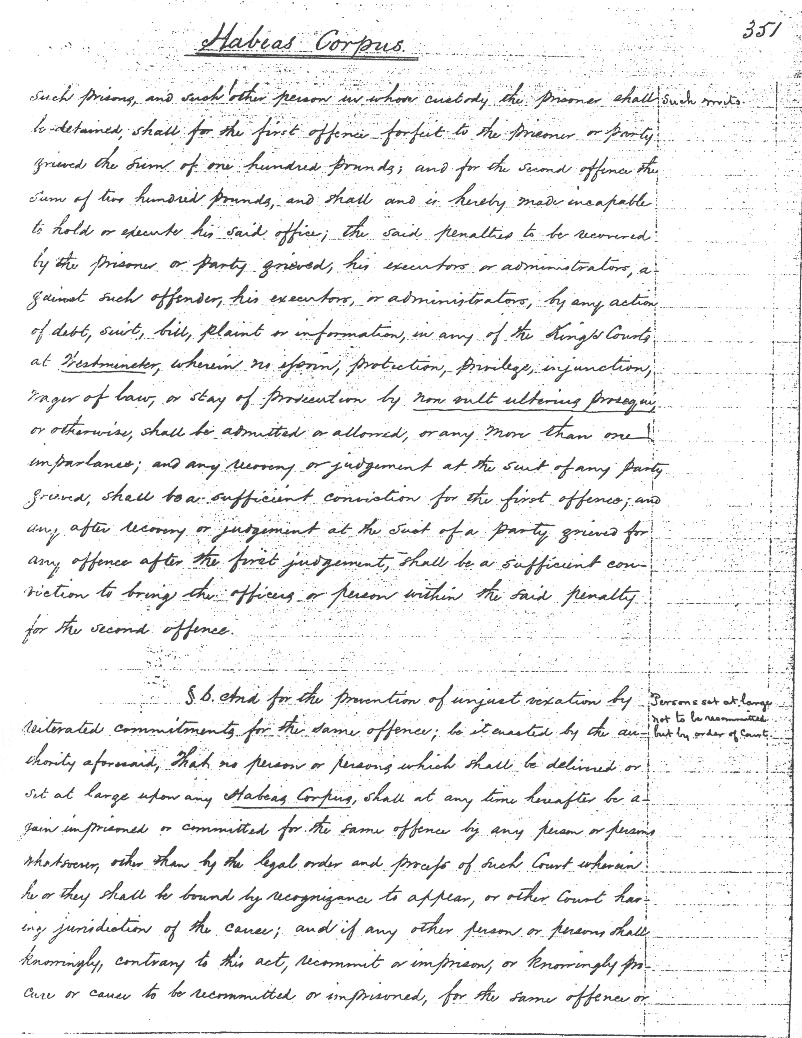 Habeas Corpus.
351
such prisons, and such other person in whose custody the prisoner shall
be detained, shall for the first offence forfeit to the prisoner or party
grieved the sum of one hundred pounds; and for the second offence the
sum of two hundred pounds, and shall and is hereby made incapable
to hold or execute his said office; the said penalties to be recovered
by the prisoner or party grieved, his executors or administrators, a-
gainst such offender, his executors, or administrators, by any action
of debt, suit, bill, plaint or information, in any of the King's Courts
at Westminster, wherein no essoin, protection, privilege, injunction,
wager of law, or stay of prosecution by non vult ulterius prosequi,
or otherwise, shall be admitted or allowed, or any more than one
imparlance; and any recovery or judgement at the suit of any party
grieved, shall be a sufficient conviction for the first offence; and
any after recovery or judgement at the suit of a party grieved for
any offence after the first judgement, shall be a sufficient con-
viction to bring the officers or person within the said penalty
for the second offence.
such writs.
§ 6. And for the prevention of unjust vexation by
reiterated commitments for the same offence; be it enacted by the au-
thority aforesaid, That no person or persons which shall be delivered or
set at large upon any Habeas Corpus, shall at any time hereafter be a-
gain imprisoned or committed for the same offence by any person or persons
whatsoever, other than by the legal order and process of such Court wherein
he or they shall be bound by recognizance to appear, or other Court hav-
ing jurisdiction of the cause; and if any other person or persons shall
knowingly, contrary to this act, recommit or imprison, or knowingly pro-
cure or cause to be recommitted or imprisoned, for the same offence or
Persons set at large
not to be recommitted
but by order of Court.